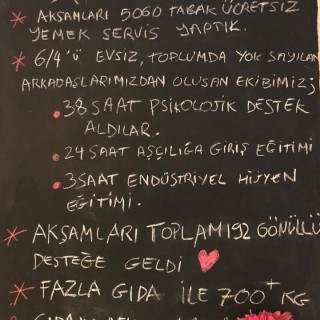 * AKŞAMLARI 5060 TABAK ÜCRETSİZ
YEMEK SERVİS YAPTIK.
* 6/4'Ü EVSİZ, TOPLUMDA YOK SAYILAN
ARKADAŞLARIMIZDAN OLUSAN EKİBİMİZ;
• 38 SAAT PSİKOLOJİK DESTEK
ALDILAR.
• 24 SAAT AŞÇILIĞA GİRİŞ EĞİTİMİ
• 3 SAAT ENDÜSTRİYEL HİJYEN
EĞİTİMİ.
* AKŞAMLARI TOPLAM 192 GÖNÜLLÜ
DESTEĞE GELDİ
* FAZLA GIDA İLE 700+ KG